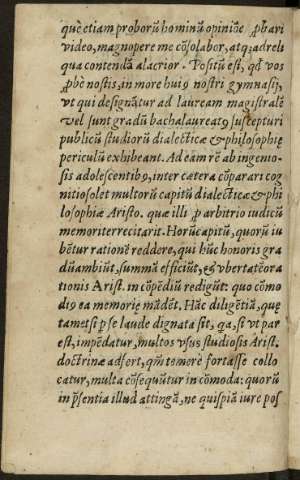 què etiam proborũ hominũ opiniõe ꝓbari
video, magnopere me cõsolabor, atqꝫ ad reli
qua contendã alacrior. Positũ est, qđ vos
ꝓbè nostis, in more huiꝰ nostri gymnasij,
vt qui designãtur ad lauream magistralẽ
vel sunt gradũ bachalaureatꝰ suscepturi
publicũ studiorũ dialecticæ & philosophiæ
periculũ exhibeant. Ad eam rẽ ab ingenio-
sis adolescentibꝰ, inter cætera cõparari cog
nitio solet multorũ capitũ dialecticæ & phi
losophiæ Aristo. quæ illi ꝓ arbitrio iudicũ
memoriter recitarit. Horũ capitũ, quorũ iu
bẽtur rationẽ reddere, qui hũc honoris gra
dũ ambiũt, summã efficiũt, & vbertatẽ ora
tionis Arist. in cõpẽdiũ redigũt: quo cõmo
diꝰ ea memoriæ mãdẽt. Hãc diligẽtiã, quę
tametsi ꝑ se laude digna sit, qa, si vt par
est, impẽdatur, multos vsus studiosis Arist.
doctrinæ adfert, qm̃ temerè fortasse collo
catur, multa cõsequũtur incõmoda: quorũ
in pr̃sentia illud attingã, ne quispiã iure pos